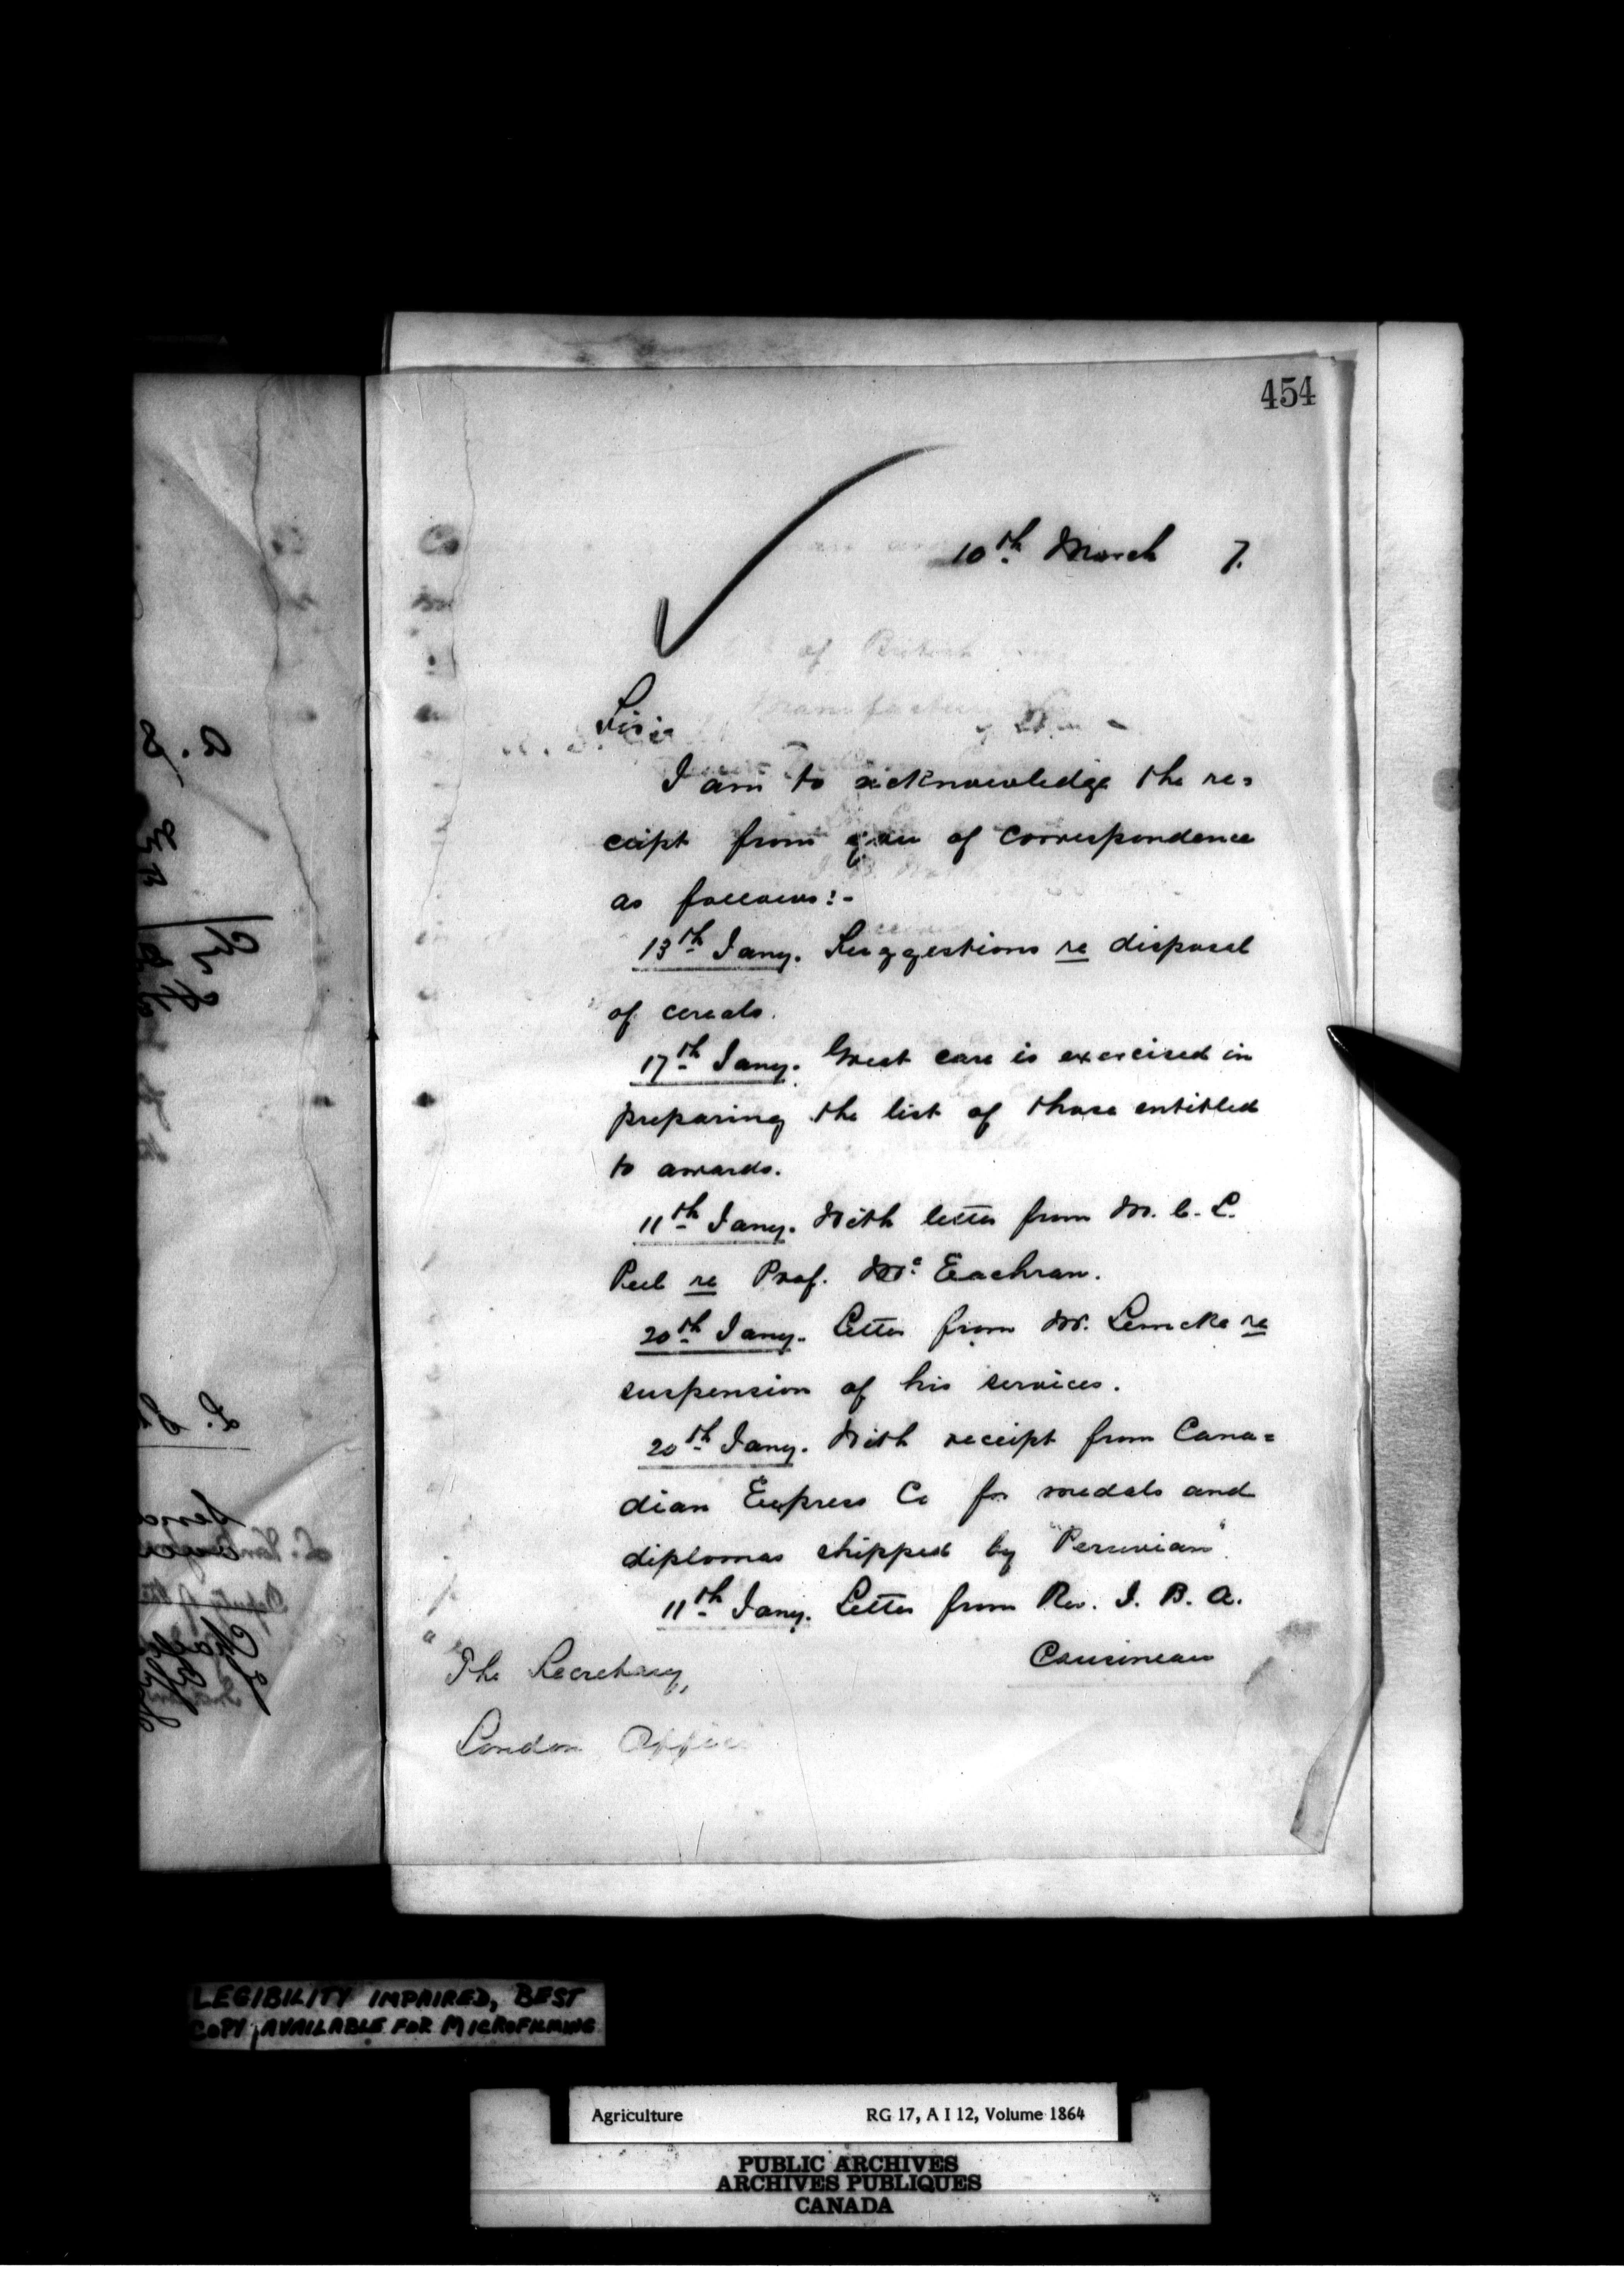 454
10th March 7.
Sir,
I am to acknowledge the re=
ceipt from you of correspondence
as follows:-
13th Jany. Suggestions re disposal
of cereals.
17th Jany. Great care is exercised in
preparing the list of those entitled
to awards.
11th Jany. With letter from M. C. L.
Peel re Prof. Mc Eachran.
20th Jany. Letter from Mr. Lemcke re
suspension of his services.
20th Jany. With receipt from Cana=
dian Express Co for medals and
diplomas shipped by "Peruvian".
11th Jany. Letter from Rev. J. B. A.
Cousineau
The Secretary,
London Office
LEGIBILITY IMPAIRED, BEST
COPY AVAILABLE FOR MICROFILMING
Agriculture RG 17, A I 12, Volume 1864
PUBLIC ARCHIVES
ARCHIVES PUBLIQUES
CANADA